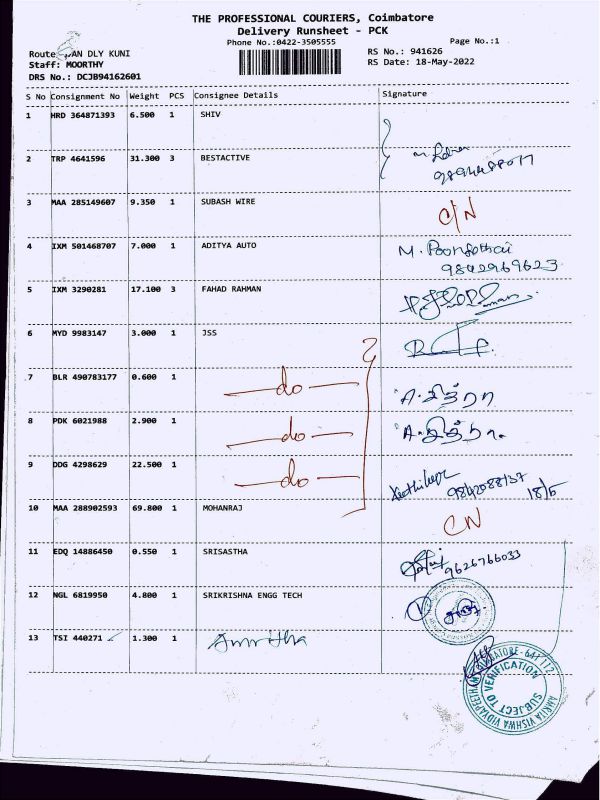 THE PROFESSIONAL COURIERS, Coimbatore
Delivery Runsheet - PCK
Phone No.:0422-3505555
Page No.:1
Route AN DLY KUNI
RS No.: 941626
Staff: MOORTHY
RS Date: 18-May-2022
DRS No.: DCJB94162601
S No Consignment No Weight PCS Consignee Details Signature
1 HRD 364871393 6.500 1 SHIV
2 TRP 4641596 31.300 3 BESTACTIVE
3 MAA 285149607 9.350 1 SUBASH WIRE C/N
4 IXM 501468707 7.000 1 ADITYA AUTO M. Poongothai
9842969623
5 IXM 3290281 17.100 3 FAHAD RAHMAN
6 MYD 9983147 3.000 1 JSS
7 BLR 490783177 0.600 1 do A. சித்ரா
8 PDK 6021988 2.900 1 do A. சித்ரா.
9 DDG 4298629 22.500 1 do 18/5
10 MAA 288902593 69.800 1 MOHANRAJ CN
11 EDQ 14886450 0.550 1 SRISASTHA 9626766033
12 NGL 6819950 4.800 1 SRIKRISHNA ENGG TECH
13 TSI 440271 1.300 1 Amrtha
AMRITA VISHWA VIDYAPEETHAM COIMBATORE - 641 112
SUBJECT TO VERIFICATION